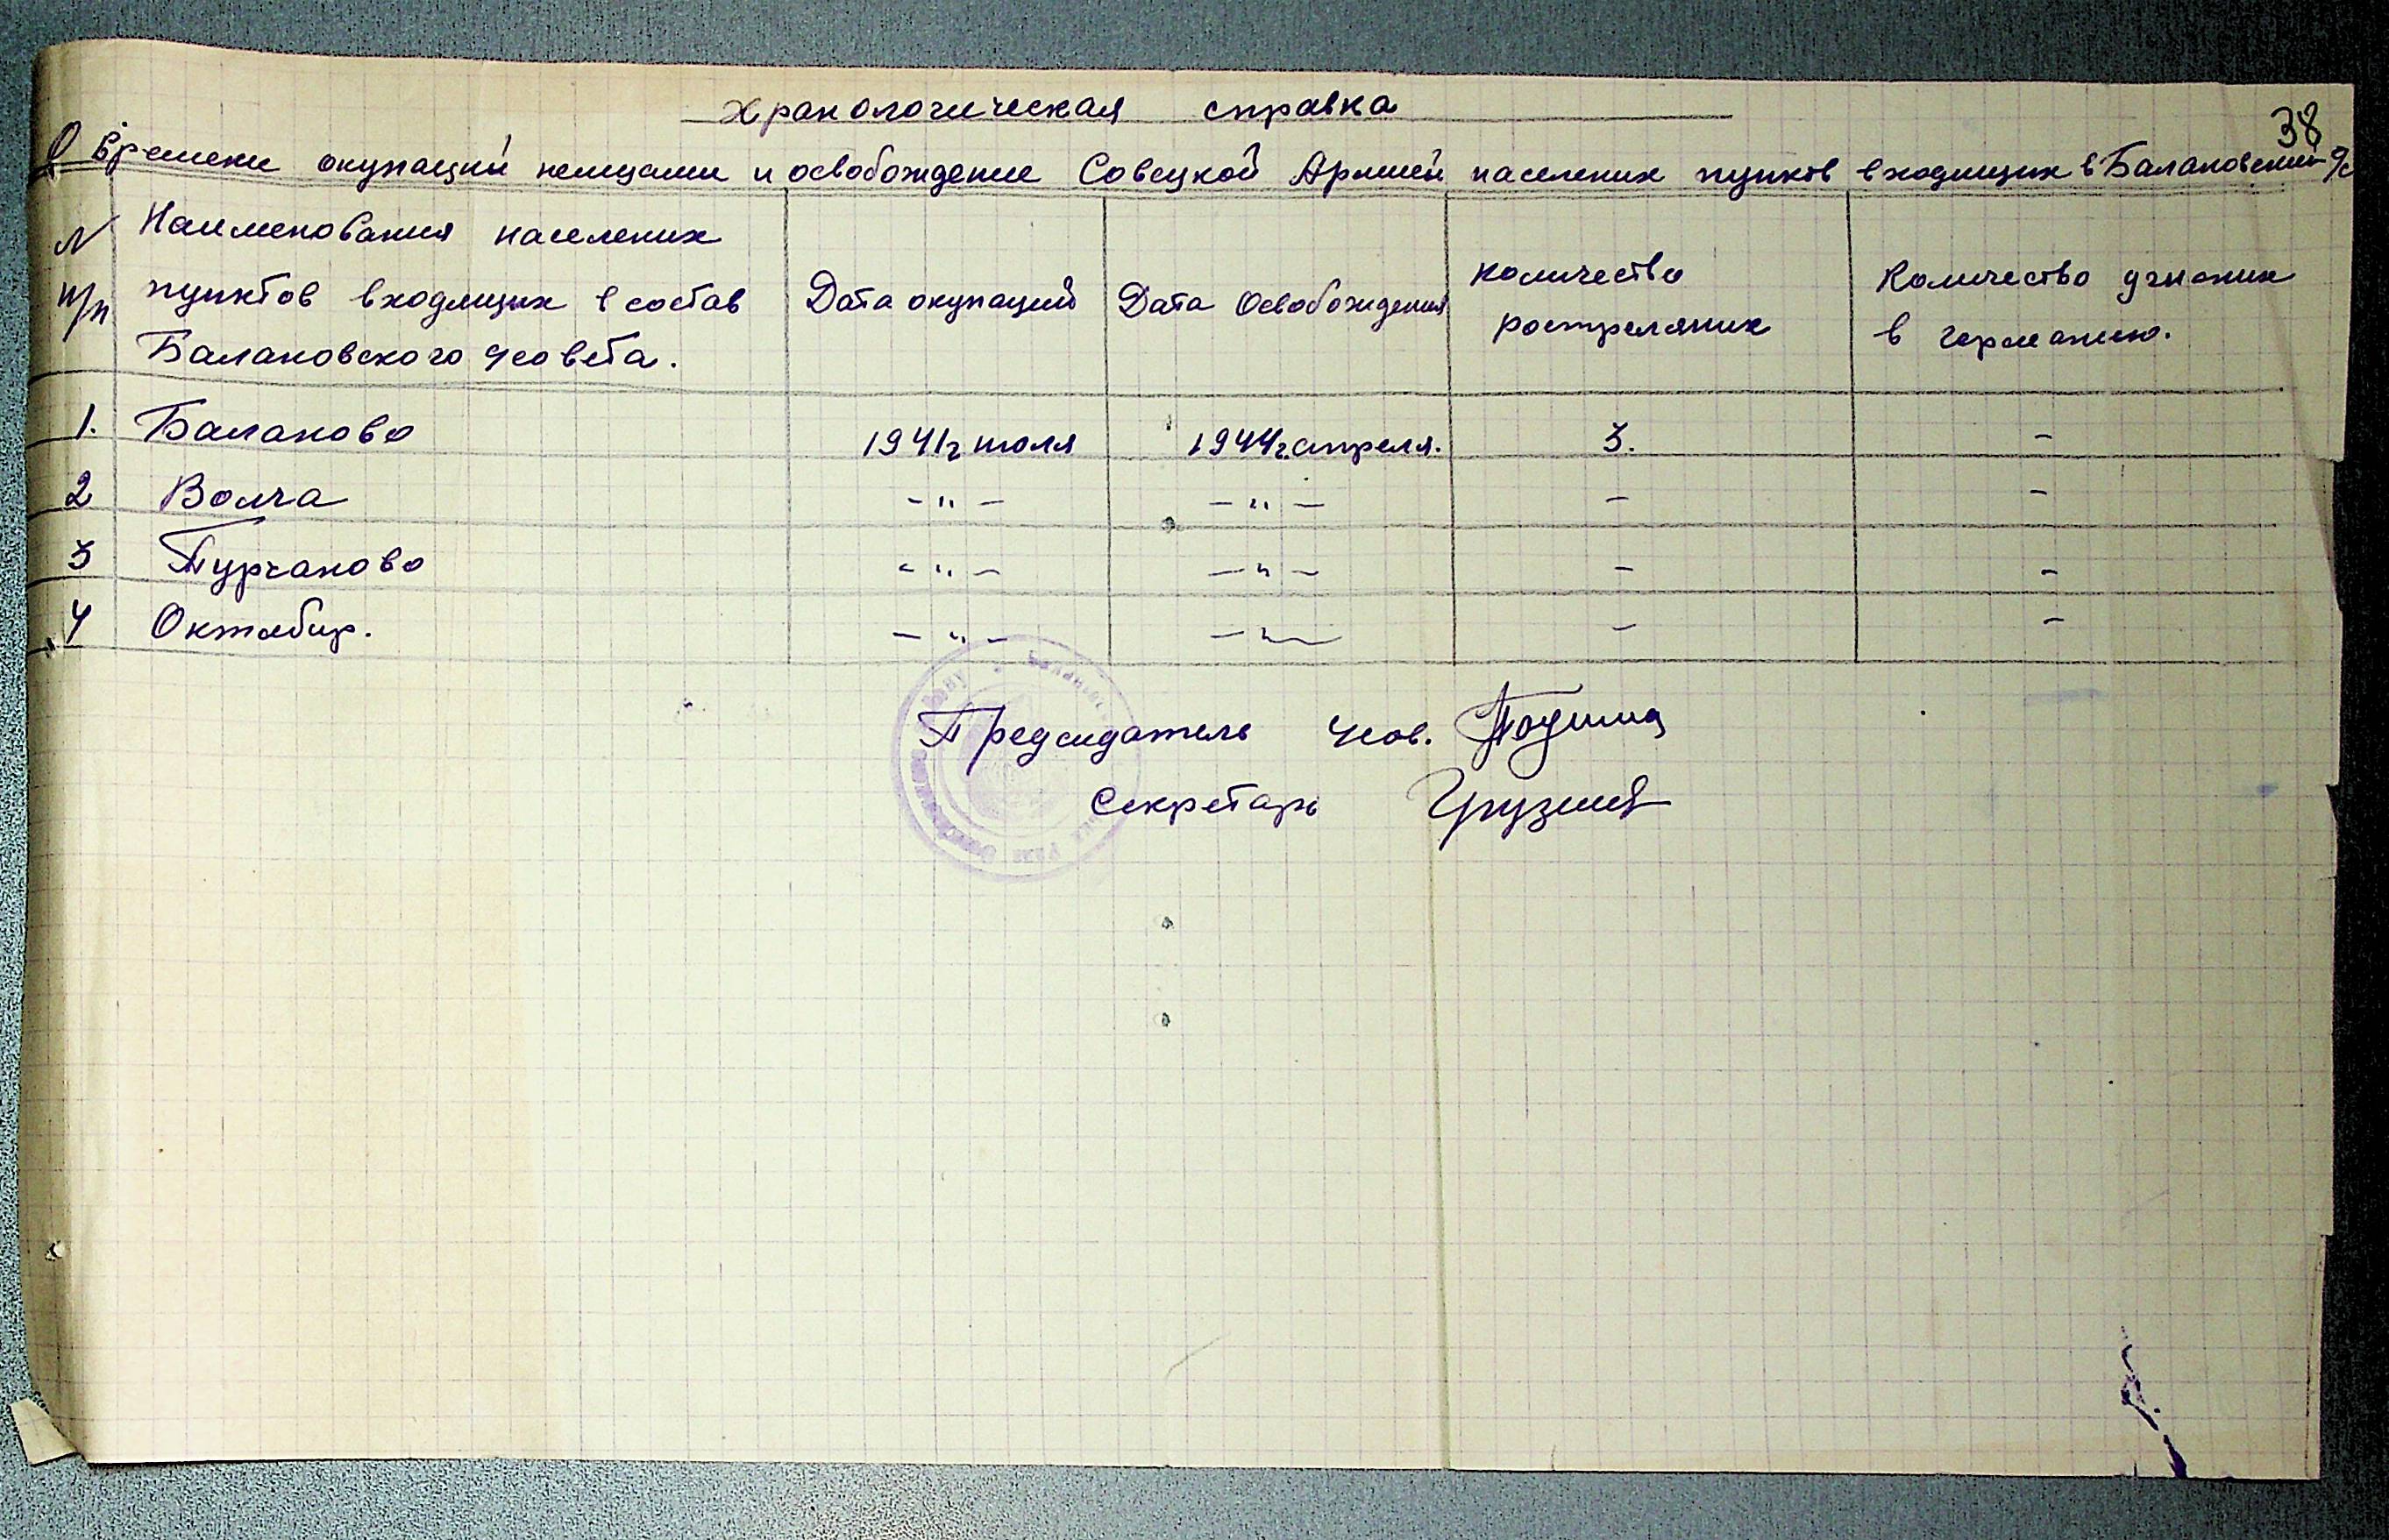 38
Хранологическая справка
О времени окупаций немцами и освобождение Совецкой Армией населених пунков входящих в Балановский с/с
N п/п
Наименования населених
пунктов входящих в состав
Балановского с/совета.
Дата окупаций
Дата Освобождения
количество
ростреляних
Количество угнаних
в германию.
1. Баланово 1941г июля 1944г. апреля. 3. -
2 Волча -"- -"- - -
3 Турчаново -"- -"- - -
4 Октябир. -"- -"- - -
Председатель с/сов.
Секретарь